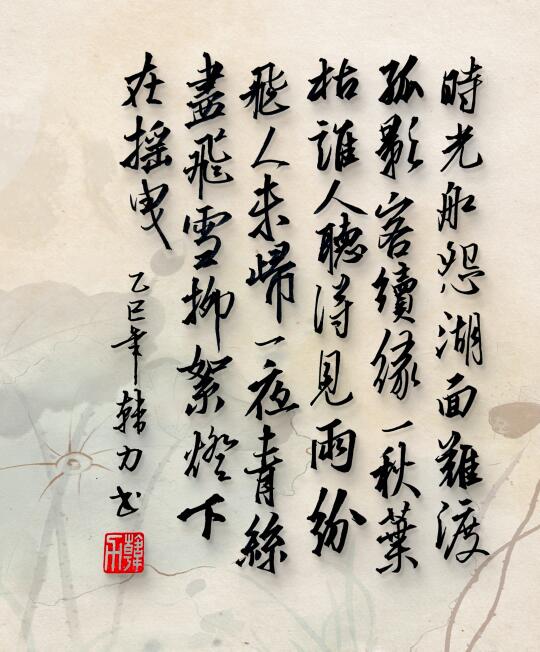 時光船怨湖面難渡
孤影客續緣一秋葉
枯誰人聽得見雨紛
飛人未歸一夜青絲
盡飛雪柳絮燈下
在摇曳
乙巳年韩力书